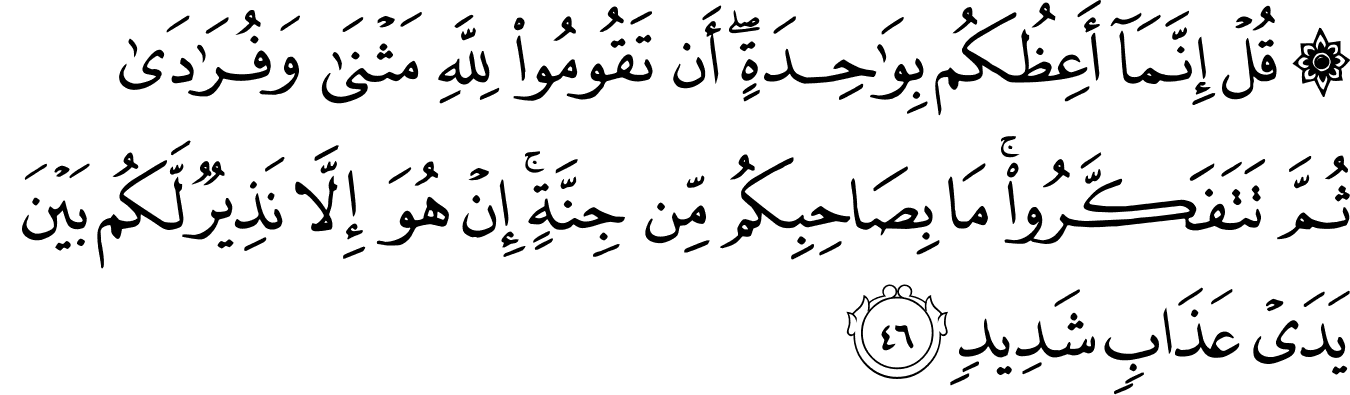 ۞ قُلۡ إِنَّمَآ أَعِظُكُم بِوَٰحِدَةٍۖ أَن تَقُومُواْ لِلَّهِ مَثۡنَىٰ وَفُرَٰدَىٰ
ثُمَّ تَتَفَكَّرُواْۚ مَا بِصَاحِبِكُم مِّن جِنَّةٍۚ إِنۡ هُوَ إِلَّا نَذِيرٞ لَّكُم بَيۡنَ
يَدَيۡ عَذَابٖ شَدِيدٖ ٤٦